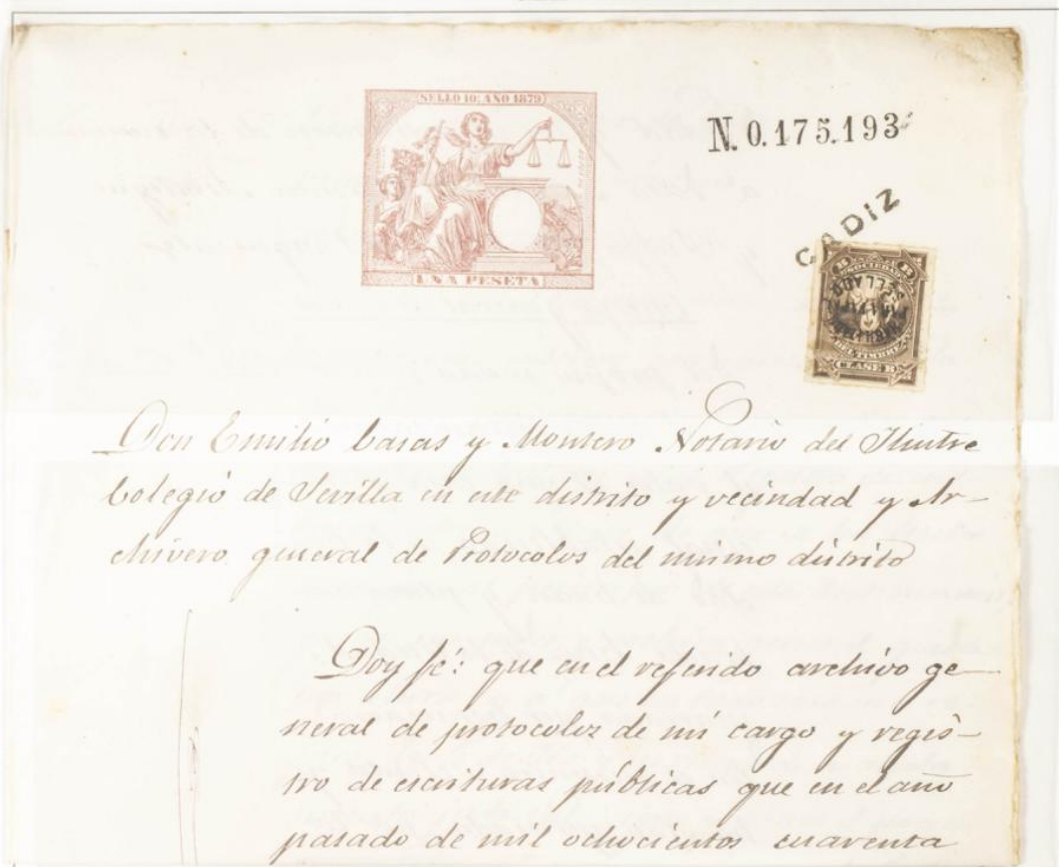 SELLO 10º AÑO 1879
UNA PESETA
N. 0.175.193
CADIZ
SOCIEDAD
SELLADO
DEL TIMBRE
CLASE B
Don Emilio Casas y Montero Notario del Ilustre
Colegio de Sevilla en este distrito y vecindad y Ar-
chivero general de Protocolos del mismo distrito
Doy fé: que en el referido archivo ge-
neral de protocolos de mi cargo y regis-
tro de escrituras públicas que en el año
pasado de mil ochocientos cuarenta